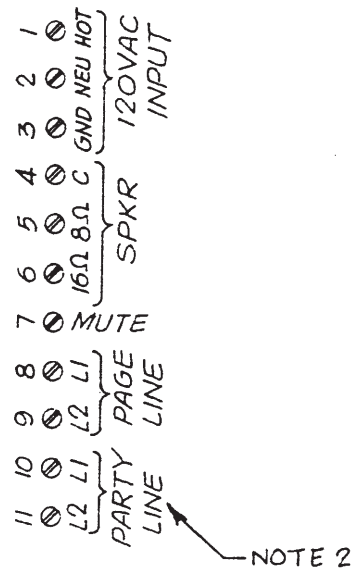 1 HOT
2 NEU
3 GND
120VAC
INPUT
4 C
5 8Ω
6 16Ω
SPKR
7 MUTE
8 L1
9 L2
PAGE
LINE
10 L1
11 L2
PARTY
LINE
NOTE 2